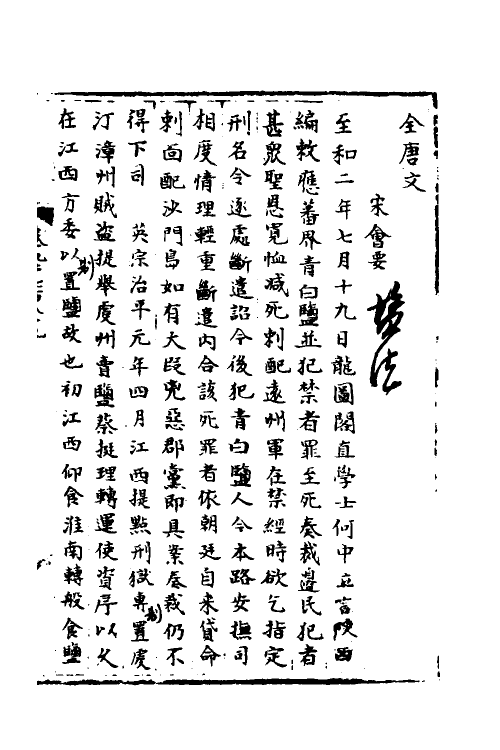 全唐文
宋會要
鹽法
至和二年七月十九日龍圖閣直學士何中立言陝西
編敕應蕃界青白鹽並犯禁者罪至死奏裁邊民犯者
甚眾聖恩寬恤减死刺配遠州軍在禁經時欲乞指定
刑名令逐處斷遣詔今後犯青白鹽人令本路安撫司
相度情理輕重斷遣內合該死罪者依朝廷自来貸命
刺面配沙門島如有大段兇惡郡黨即具案奏裁仍不
得下司　英宗治平元年四月江西提點刑獄專置虔
制
汀漳州賊盜提舉虔州賣鹽蔡挺理轉運使資序以久
在江西方委以置鹽故也初江西仰食淮南轉般食鹽
制